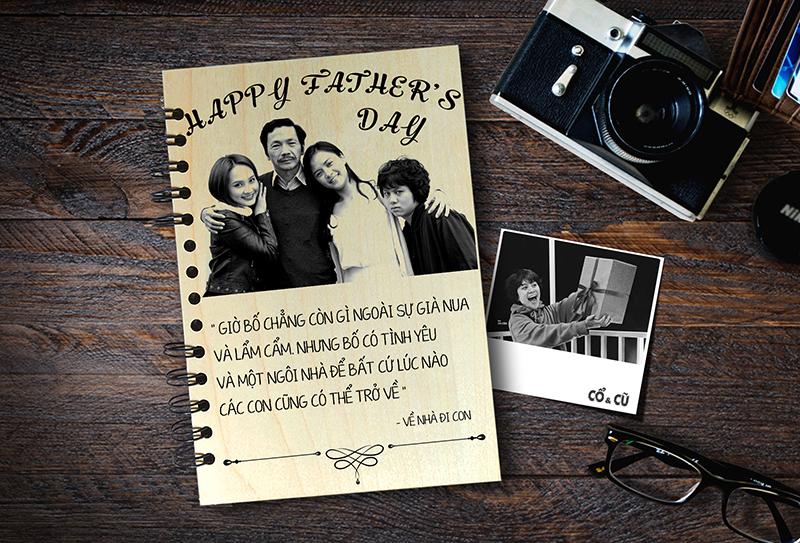 HAPPY FATHER'S
DAY
" GIỜ BỐ CHẲNG CÒN GÌ NGOÀI SỰ GIÀ NUA
VÀ LẨM CẨM. NHƯNG BỐ CÓ TÌNH YÊU
VÀ MỘT NGÔI NHÀ ĐỂ BẤT CỨ LÚC NÀO
CÁC CON CŨNG CÓ THỂ TRỞ VỀ "
- VỀ NHÀ ĐI CON
CỔ & CŨ